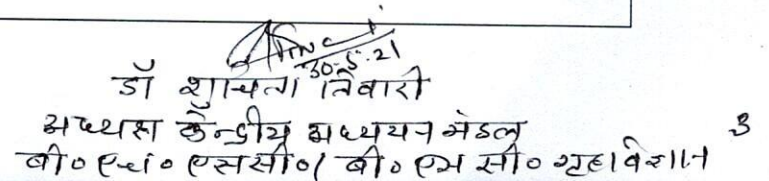 30-5-21
डॉ शुचिता तिवारी
अध्यक्ष केन्द्रीय अध्ययन मंडल
3
बी० एच० एससी०/ बी० एस सी० गृहविज्ञान